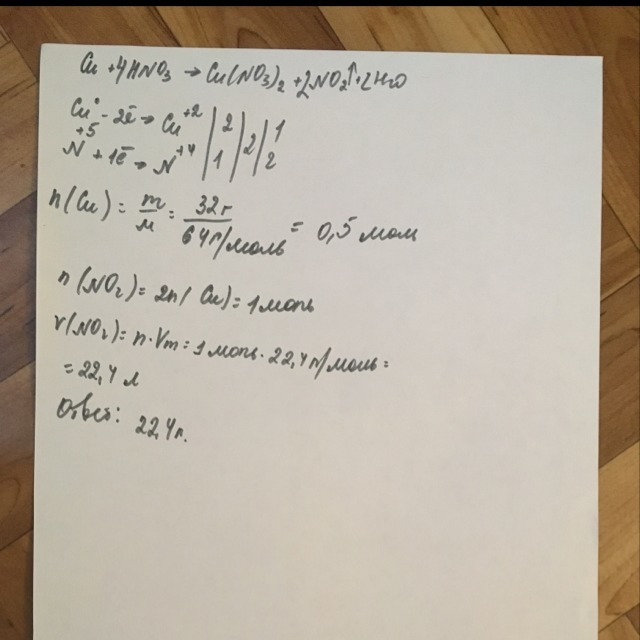 Cu + 4HNO3 → Cu(NO3)2 + 2NO2↑ + 2H2O
Cu⁰ - 2ē → Cu⁺² | 2 | 2 | 1
N⁺⁵ + 1ē → N⁺⁴ | 1 | 2
n(Cu) = m/M = 32г/64г/моль = 0,5 моль
n(NO2) = 2n(Cu) = 1 моль
V(NO2) = n·Vm = 1 моль · 22,4 л/моль =
= 22,4 л
Ответ: 22,4 л.